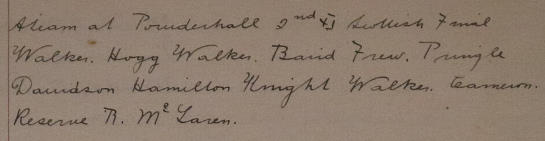 Ateam at Powderhall 2nd XI Scottish Final
Walker. Hogg Walker. Baird Frew. Pringle
Davidson Hamilton Knight Walker. Cameron.
Reserve R. McLaren.